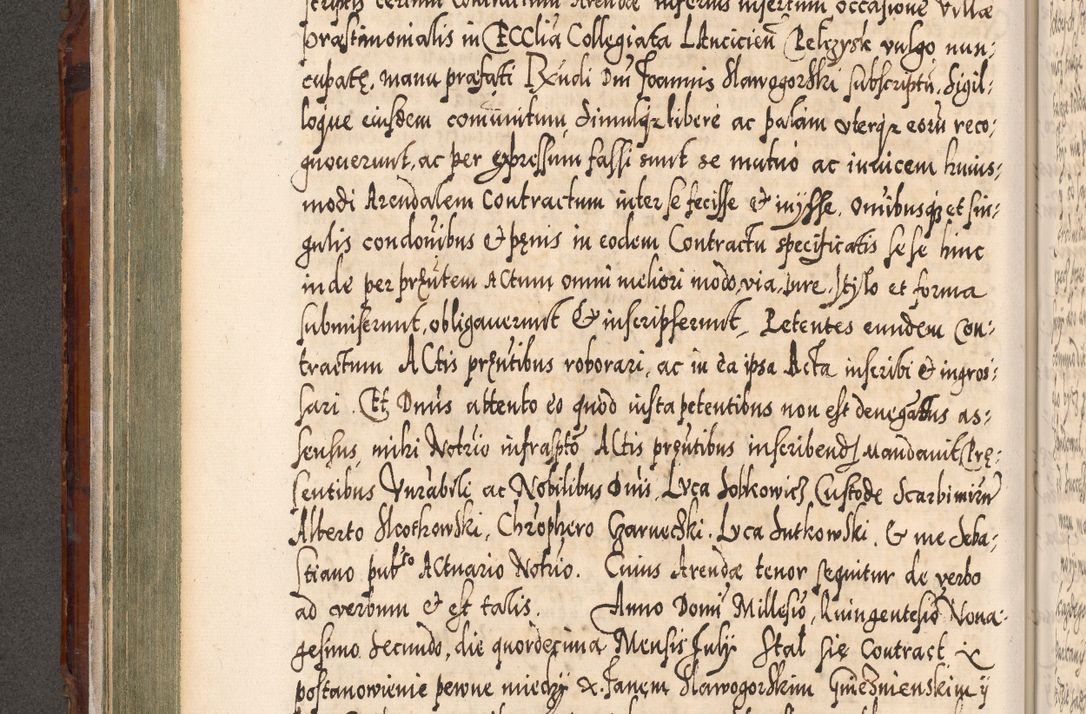 scriptis certum Contractum Arendæ inferius insertum occasione villæ
Præstimonialis in ECClia Collegiata LAncicien Pelczysk vulgo nun:
cupatę, manu præfati Rndi Dni Joannis Slawogorski subscriptū, Sigil:
loque eiusdem comunitum, Simulqz libere ac palam uterqz eorū reco:
gnouerunt, ac per expressum fassi sunt se mutuo ac inuicem huius:
modi Arendalem Contractum inter se fecisse et inysse, omibusqz et sin:
gulis condonibus & pęnis in eodem Contractu specificatis sese hinc
inde per pręntem ACtum omni meliori modo, via, iure, stylo et forma
submiserunt, obligauerunt & inscripserunt, Petentes eundem Con:
tractum ACtis pręntibus roborari, ac in ea ipsa Acta inscribi & ingros:
sari. Et Dnus attento eo quod iusta petentibus non est denegatus as:
sensus, mihi Notrio infrascpto ACtis pręntibus inscribend Mandauit Pre:
sentibus Vnrabili ac Nobilibus Dnis, Lvca Sobkowicz Custode Scarbimirien
Alberto Skotkowski, Chrophero Czarnecski, Lvca Sutkowski, & me Seba:
stiano pubco ACtuario Notrio. Cuius Arendæ tenor sequitur de verbo
ad verbum & est talis. Anno Domi Millesio, Quingentesio Nona:
gesimo Secundo, die quordecima Mensis July Stał się Contract y
postanowienie pewne miedzy X. Janem Slawogorskim Gnieznienskim y